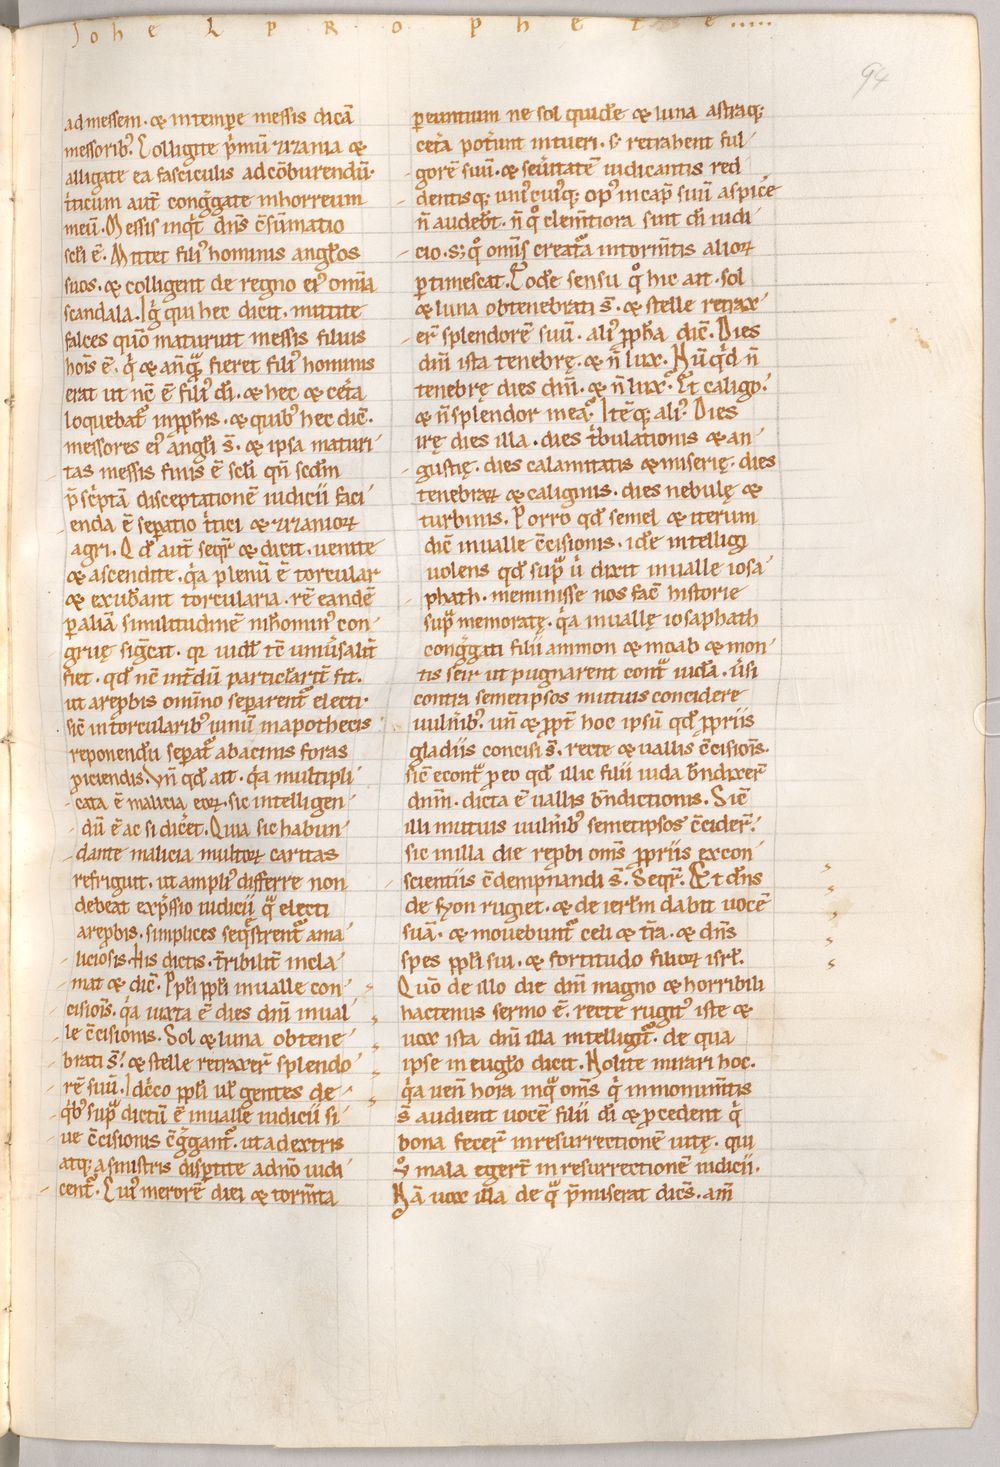 Johel prophete.....
94
ad messem. & in tempe messis dicā
messorib'. Colligite p̄mū zizania &
alligate ea fasciculis ad cōburendū.
t̄ticum aut̄ cong̃gate in horreum
meū. Messis inq̄t dn̄s c̄sūmatio
scl̄i ē. Mittet fili' hominis angl̄os
suos. & colligent de regno ei' om̄ia
scandala. Ig̃ qui hec dicit. mittite
falces quō maturuit messis filius
hōis ē. q̄ & anq̃ fieret fili' hominis
erat ut nc̄ ē fili' dī. & hec & cēta
loquebat̄ in pph̄is. & quib' hec dic̄.
messores ei' angl̄i s̄. & ipsa maturi
tas messis finis ē scl̄i qn̄ scdm̄
p̄sc̄ptā disceptationē iudicii faci
enda ē sepatio t̄tici & zizanioꝝ
agri. Qd̄ aut̄ seqr̄ & dicit. uenite
& ascendite. q̄a plenū ē torcular
& exub̄ant torcularia. rē eandē
p aliā similitudinē n̄ homin' con
gruę sig̃cat. qr iudl̄ tc̄ uniu̅salit̄
fiet. qd̄ nc̄ int̄dū particl̄arit̄ fit.
ut a rep̄bis omīno separent̄ electi.
sic̄ in torcularib' uinū in apothecis
reponendū sepat̄ ab acinis foras
p̄iciendis. Vn̄ qd̄ ait. q̄a multipli
cata ē malicia eoꝝ. sic intelligen
dū ē ac si dic̄et. Quia sic habun
dante malicia multoꝝ caritas
refrigüit. ut ampli' differre non
debeat exp̄ssio iudicii q̃ electi
a rep̄bis. simplices seq̃strent̄ a ma
liciosis. His dictis. t̄ribilit̄ incla
mat & dic̄. Ppl̄i ppl̄i in ualle con
cisioīs. q̄a iuxta ē dies dn̄i in ual
le c̄cisionis. Sol & luna obtene
brati s̄. & stelle retraxer̄ splendo
rē suū. Idc̄co ppl̄i ul̄ gentes de
q̄b' sup̃ dictū ē in ualle iudicii si
ue c̄cisionis c̄g̃gant̄. ut a dextris
atq; a sinistris disp̄tite ad n̄o iudi
cent̄. Cui' merorē diei & torm̄ta
peuntium ne sol quidē & luna astraq;
cēta pot̄unt intueri. s; retrahent ful
gorē suū. & seu̅itatē iudicantis red
dentisq; unic̄uiq; op' in cap̄ suū aspic̄e
n̄ audeb̄t. n̄ q̊ clem̄tiora sint dī iudi
cio. S; q̊ om̄is creat̃a in torm̄tis alioꝝ
ptimescat. Eodē sensu q̊ hic ait. sol
& luna obtenebrati s̄. & stelle retrax
er̄ splendorē suū. ali' pph̄a dic̄. Dies
dn̄i ista tenebrę. & n̄ lux. Nūq̄d n̄
tenebrę dies dn̄i. & n̄ lux. Et caligo.
& n̄ splendor in ea. Itē q; ali'. Dies
irę dies illa. dies t̄bulationis & an
gustię. dies calamitatis & miserię. dies
tenebraꝝ & caliginis. dies nebulę &
turbinis. Porro qd̄ semel & iterum
dic̄ in ualle c̄cisionis. idē intelligi
uolens qd̄ sup̃ ū dixit in ualle iosa
phath. meminisse nos fac̄ historie
sup̃ memoratę. q̄a in uallę iosaphath
cong̃gati filii ammon & moab & mon
tis seir ut pugnarent cont̃ iudā. u̅si
contra semetipsos mutuis concidere
uuln̄ib'. un̄ & ppt̄ hoc ipsū qd̄ ppriis
gladiis concisi s̄. recte & uallis c̄cisioīs.
sic̄ econt̃ p eo qd̄ illic filii iuda bn̄dixer̄
dnm̄. dicta ē uallis bn̄dictionis. Sic̄
illi mutuis uuln̄ib' semetipsos c̄cider̄.
sic in illa die rep̄bi om̄s ppriis ex con
scientiis c̄dempnandi s̄. Seqr̄. Et dn̄s
de syon rugiet. & de ierl̄m dabit uocē
suā. & mouebunt̄ celi & t̄ra. & dn̄s
spes ppl̄i sui. & fortitudo filioꝝ isrl̄.
Quō de illo die dn̄i magno & horribili
hactenus sermo ē. recte rugit' iste &
uox ista dn̄i illa intelligit̄. de qua
ipse in eugl̄o dicit. Nolite mirari hoc.
q̄a uen̄ hora in q̃ om̄s q̄ in monum̄tis
s̄ audient uocē filii dī & pcedent q̄
bona fecer̄ in resurrectionē uitę. qui
v̊ mala egert̄ in resurrectionē iudicii.
Nā uox illa de q̃ p̄miserat dic̄s. am̄